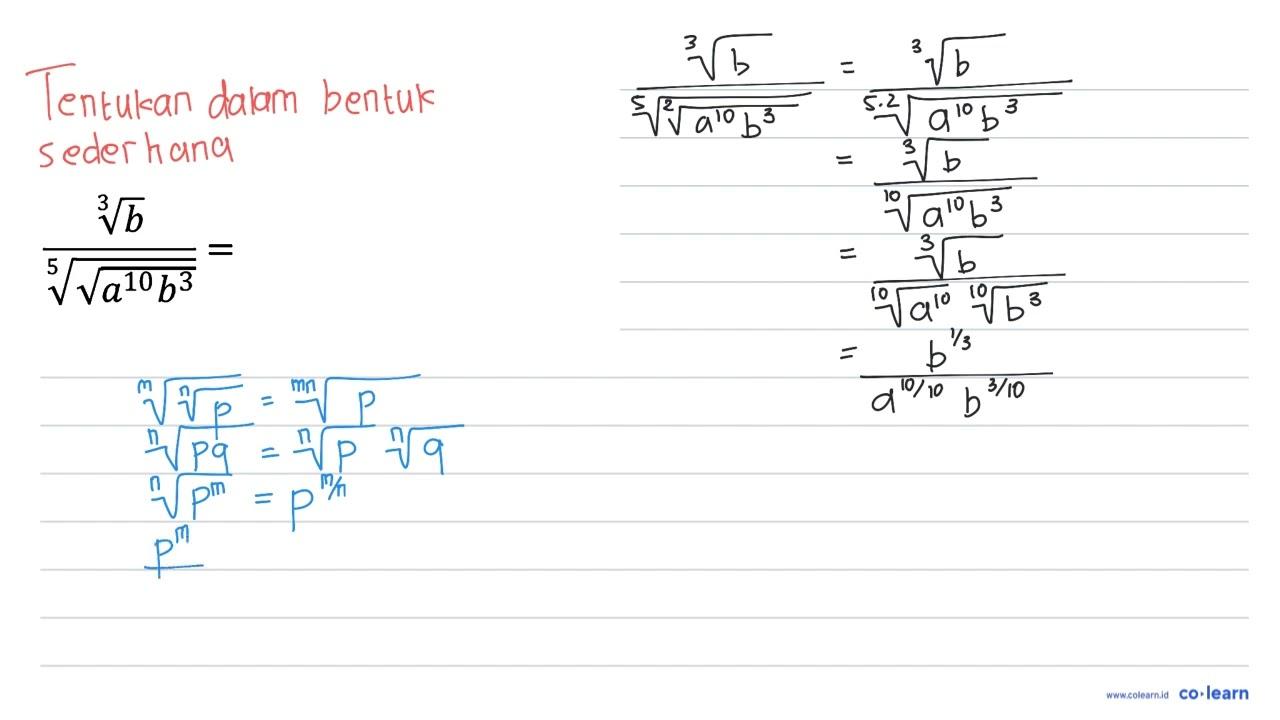 Tentukan dalam bentuk
sederhana
∛b / ⁵√(√(a¹⁰b³)) =
ᵐ√(ⁿ√p) = ᵐⁿ√p
ⁿ√(pq) = ⁿ√p ⁿ√q
ⁿ√(pᵐ) = p^(m/n)
pᵐ /
∛b / ⁵√(²√(a¹⁰b³)) = ∛b / ⁵·²√(a¹⁰b³)
= ∛b / ¹⁰√(a¹⁰b³)
= ∛b / (¹⁰√(a¹⁰) ¹⁰√(b³))
= b^(1/3) / (a^(10/10) b^(3/10))
www.colearn.id co·learn